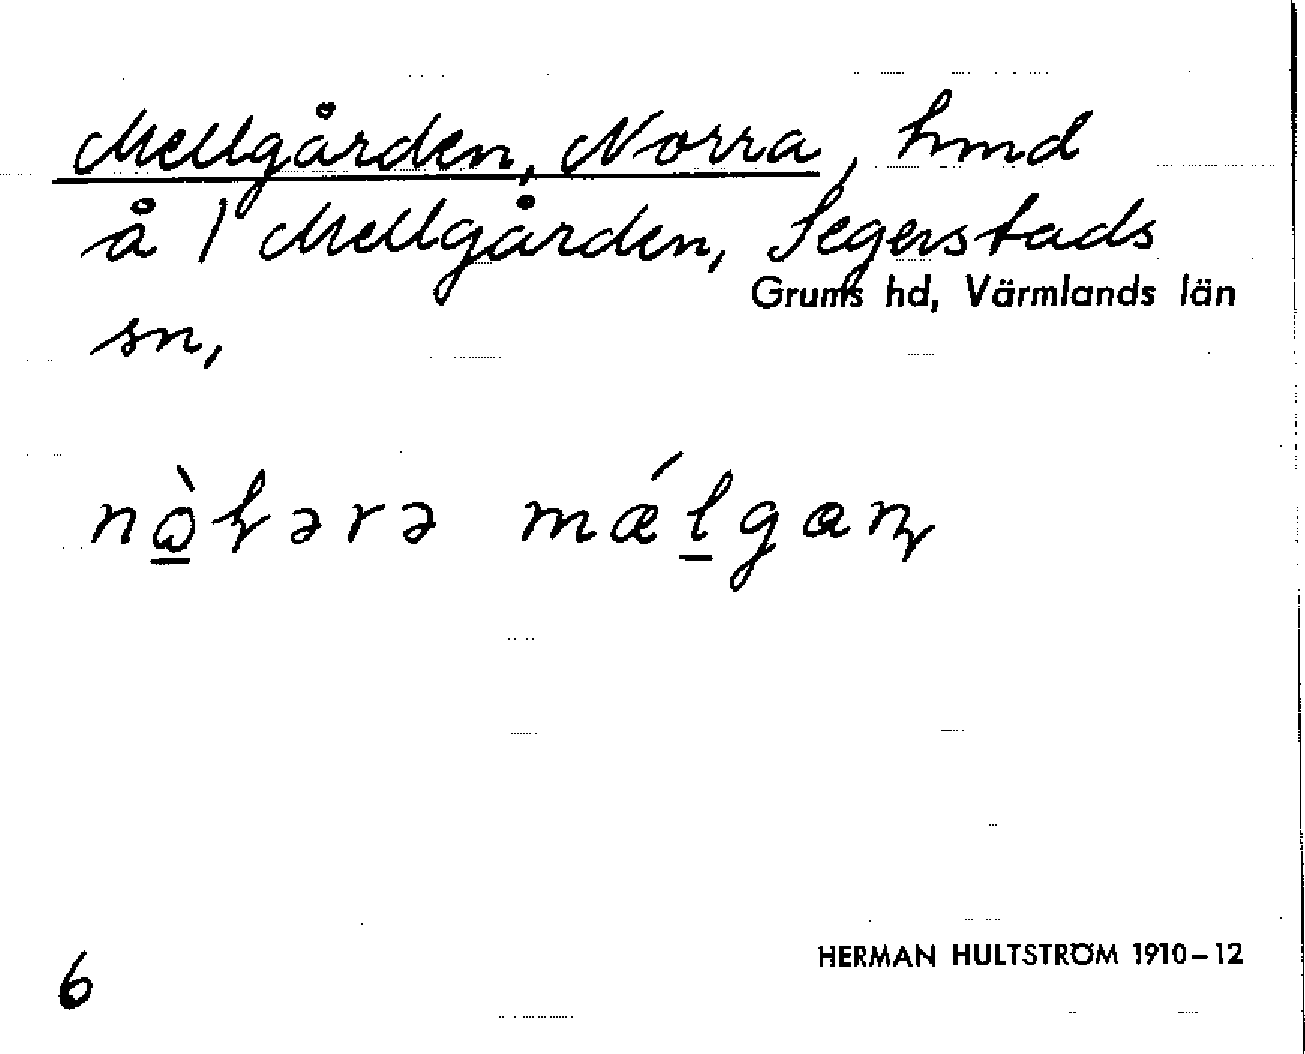 Mellgården, Norra, hmd
å 1 Mellgården, Segerstads
Grums hd, Värmlands län
sn,
6
HERMAN HULTSTRÖM 1910–12